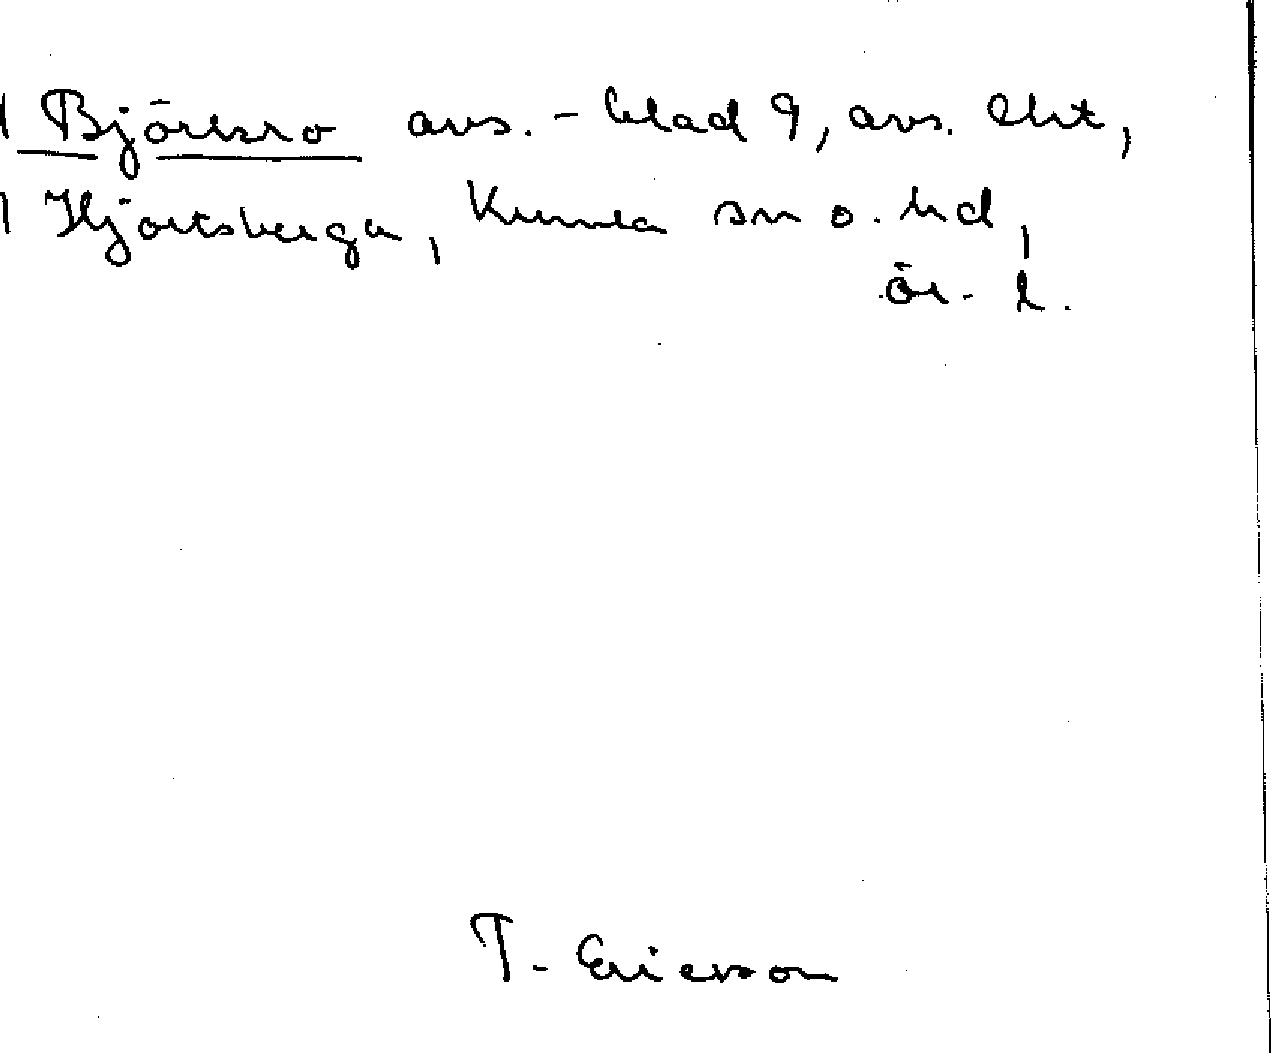 Björkro avs. - blad 9, avs. Cht,
Hjortsberga, Kumla sn o. hd,
Ör. l.
T. Ericsson